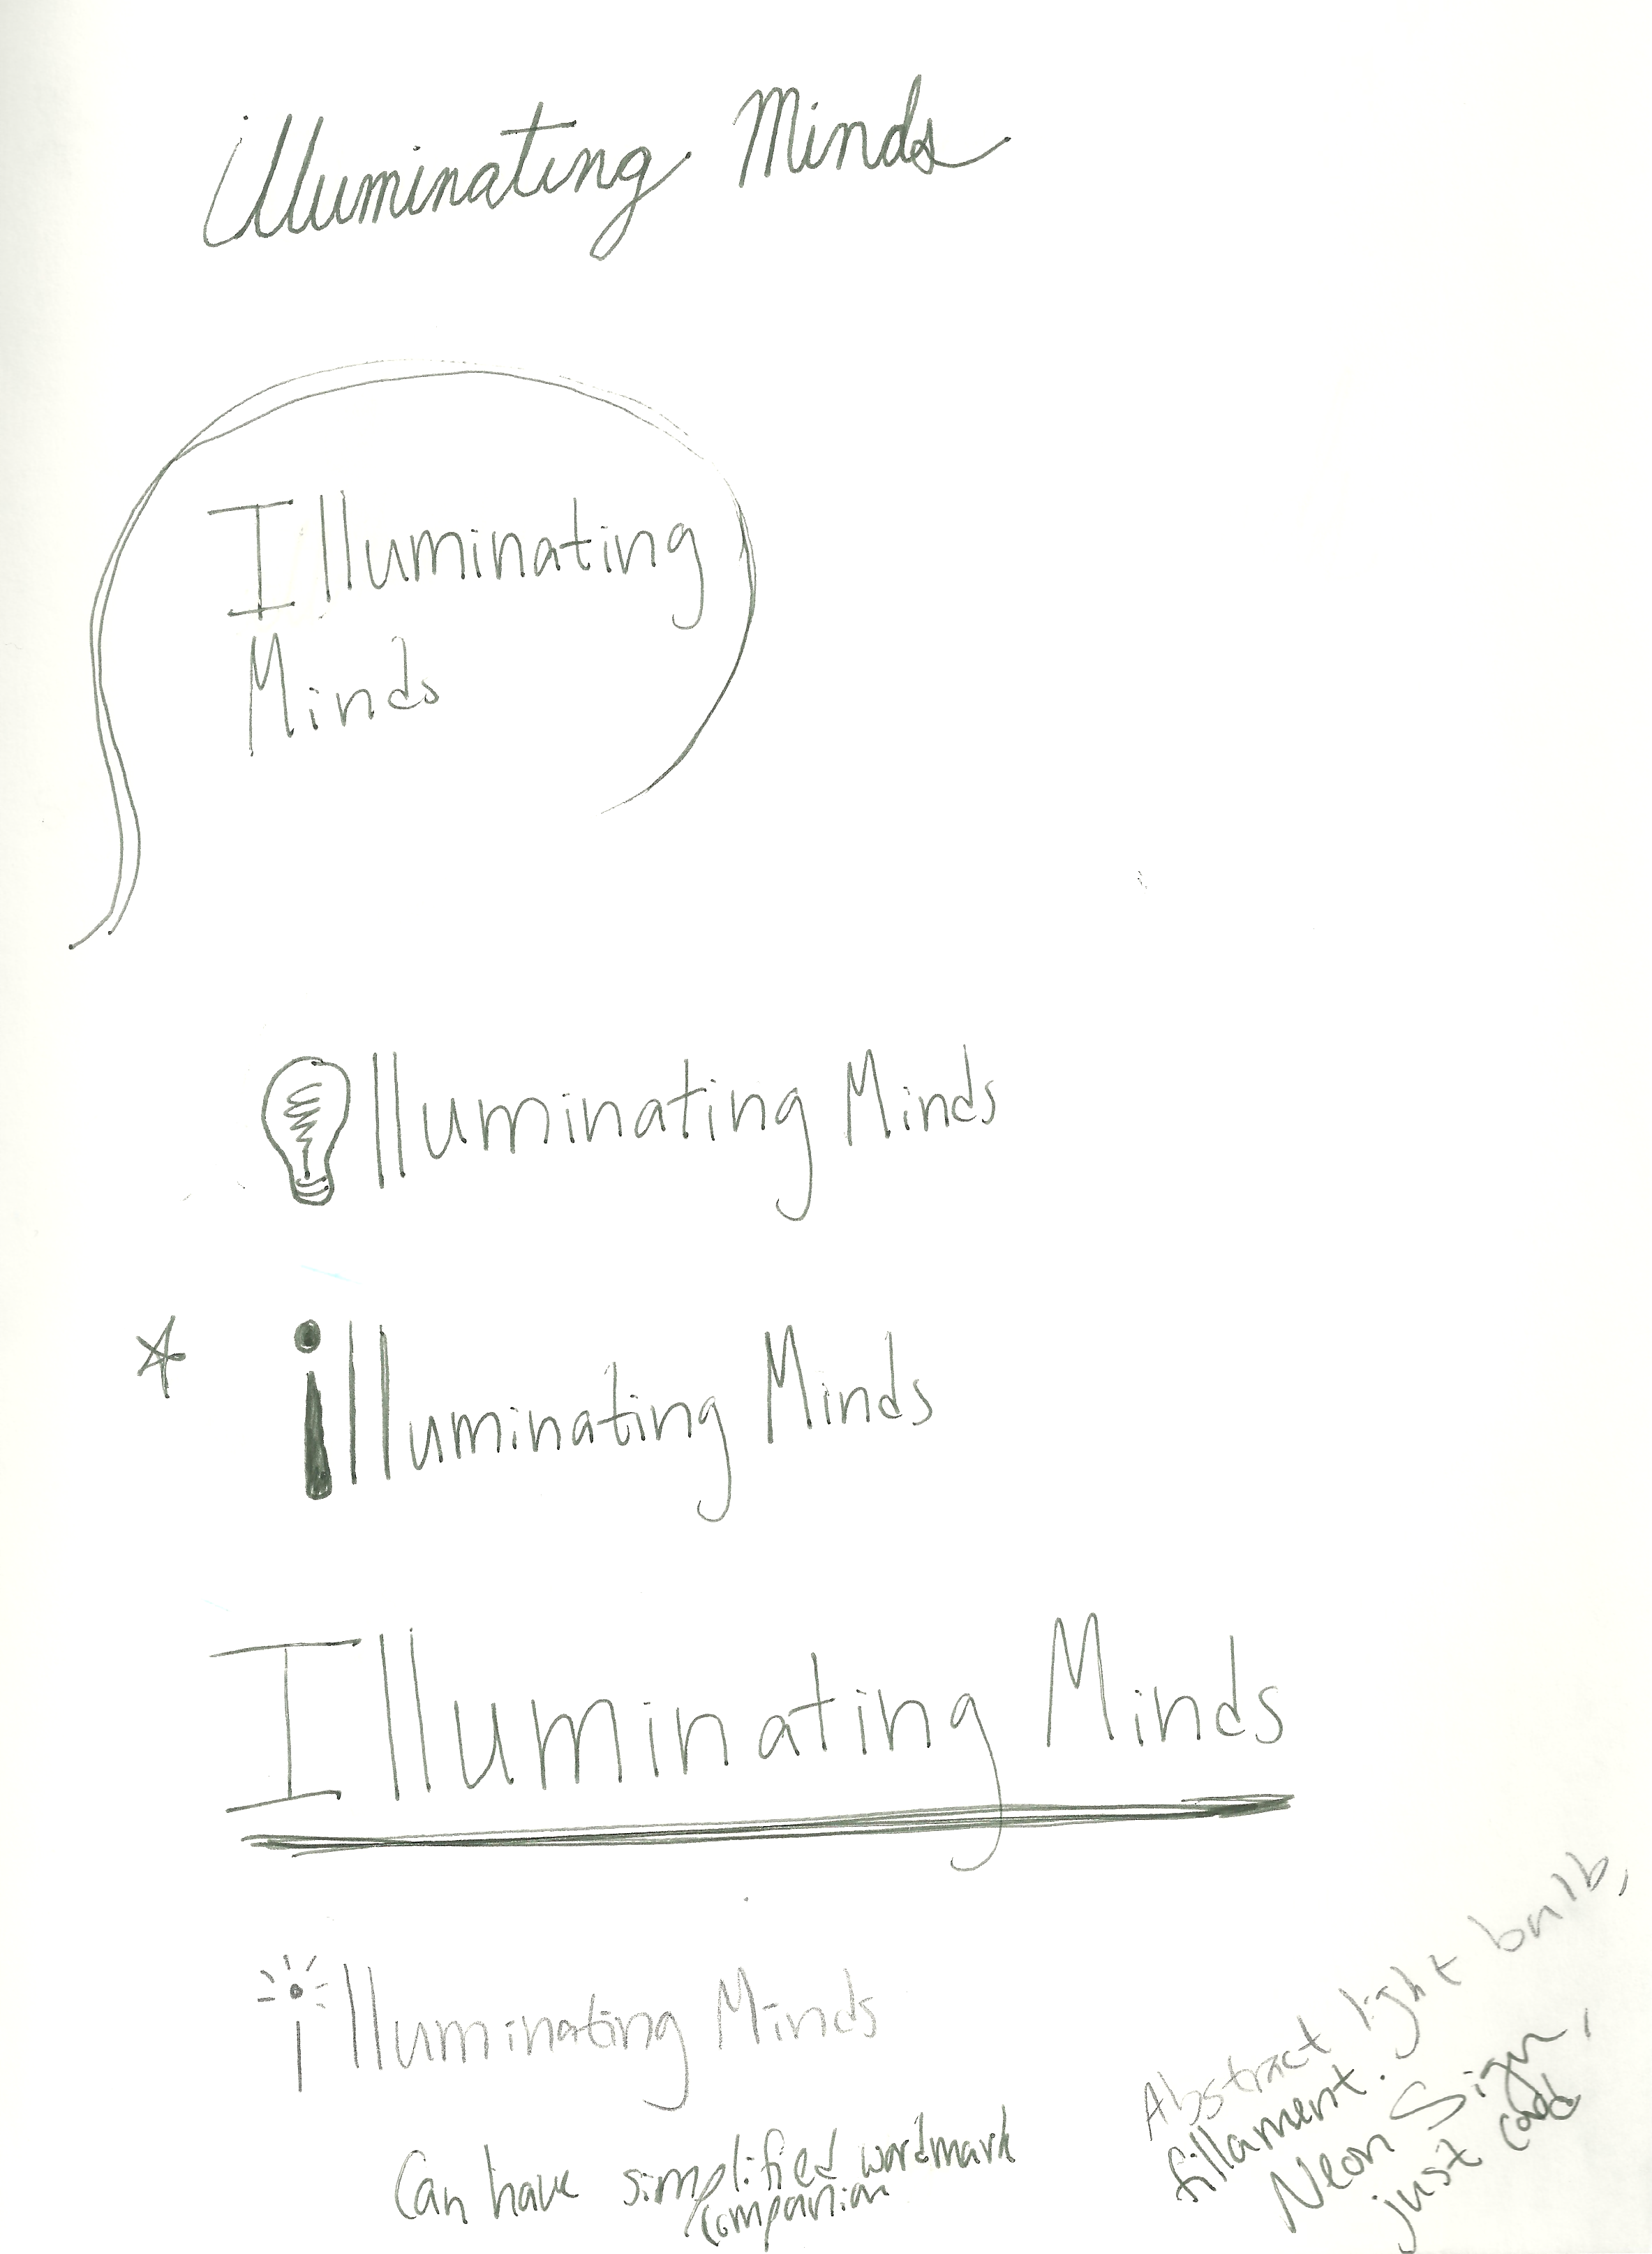 illuminating Minds
Illuminating
Minds
lluminating Minds
illuminating Minds
Illuminating Minds
illuminating Minds
Can have simplified wordmark
companion
Abstract light bulb,
fillament.
Neon Sign,
just